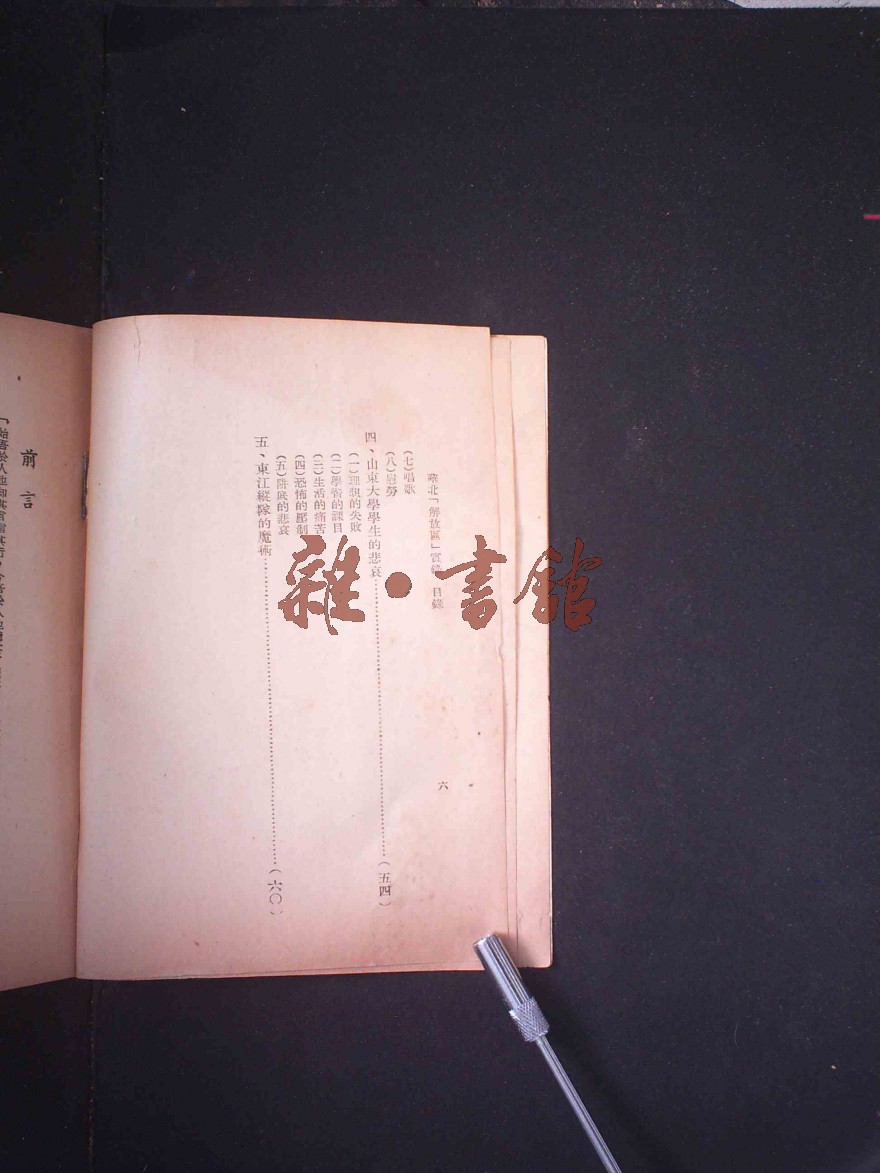 「解放區」實錄 目錄
六
(七)唱歌
(八)慰勞
四、山東大學學生的悲哀…………(五四)
(一)理想的失敗
(二)學習的課目
(三)生活的痛苦
(四)恐怖的壓制
(五)階底的悲哀
五、東江縱隊的魔術…………(六〇)
前言
雜·書館